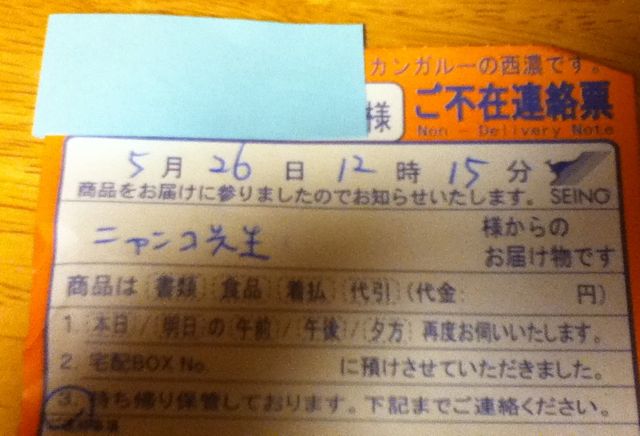 カンガルーの西濃です。
様 ご不在連絡票
Non-Delivery Note
5月26日12時15分
商品をお届けに参りましたのでお知らせいたします。 SEINO
ニャンコ先生 様からの
お届け物です
商品は 書類 食品 着払 代引 (代金: 円)
1. 本日/明日の午前/午後/夕方 再度お伺いいたします。
2. 宅配BOX No. に預けさせていただきました。
3. 持ち帰り保管しております。下記までご連絡ください。